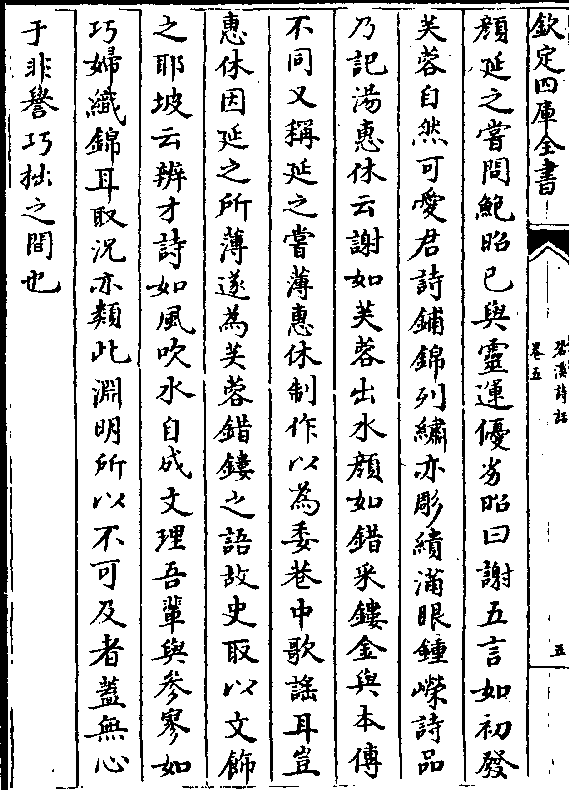 欽定四庫全書
䂬溪詩話
卷五
五
顔延之嘗問鮑昭已與靈運優劣昭曰謝五言如初發
芙蓉自然可愛君詩鋪錦列繡亦彫繢滿眼鍾嶸詩品
乃記湯惠休云謝如芙蓉出水顔如錯采鏤金與本傳
不同又稱延之嘗薄惠休制作以為委巷中歌謡耳豈
惠休因延之所薄遂為芙蓉錯鏤之語故史取以文飾
之耶坡云辨才詩如風吹水自成文理吾輩與參寥如
巧婦織錦耳取况亦類此淵明所以不可及者蓋無心
于非譽巧拙之間也